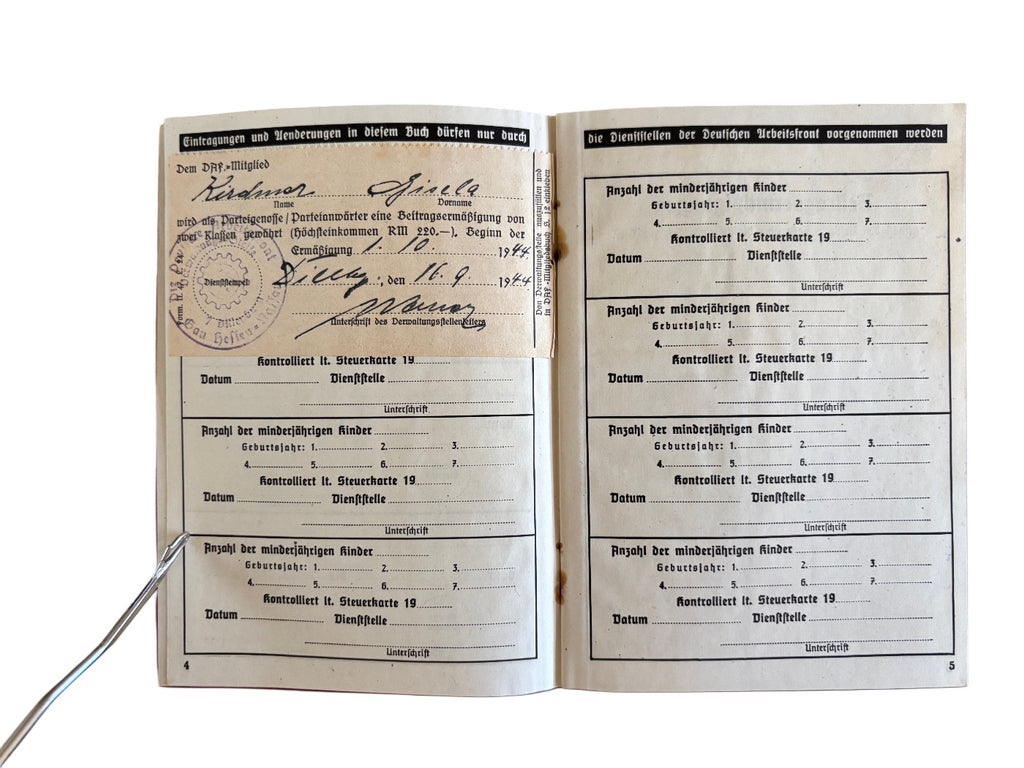 Eintragungen und Aenderungen in diesem Buch dürfen nur durch
Dem DAF.-Mitglied
Gisela
Name Vorname
wird als Parteigenosse / Parteianwärter eine Beitragsermäßigung von
zwei Klassen gewährt (Höchsteinkommen RM 220.—). Beginn der
Ermäßigung 1. 10. 1944
Dienststempel
, den 16. 9 1944
Unterschrift des Verwaltungsstellenleiters
Von Verwaltungsstelle auszufüllen und
in DAF.-Mitgliedsbuch S. 12 einkleben
Gau Hessen-Nassau
Kontrolliert lt. Steuerkarte 19
Datum Dienststelle
Unterschrift
Anzahl der minderjährigen Kinder
Geburtsjahr: 1. 2. 3.
4. 5. 6. 7.
Kontrolliert lt. Steuerkarte 19
Datum Dienststelle
Unterschrift
Anzahl der minderjährigen Kinder
Geburtsjahr: 1. 2. 3.
4. 5. 6. 7.
Kontrolliert lt. Steuerkarte 19
Datum Dienststelle
Unterschrift
4
die Dienststellen der Deutschen Arbeitsfront vorgenommen werden
Anzahl der minderjährigen Kinder
Geburtsjahr: 1. 2. 3.
4. 5. 6. 7.
Kontrolliert lt. Steuerkarte 19
Datum Dienststelle
Unterschrift
Anzahl der minderjährigen Kinder
Geburtsjahr: 1. 2. 3.
4. 5. 6. 7.
Kontrolliert lt. Steuerkarte 19
Datum Dienststelle
Unterschrift
Anzahl der minderjährigen Kinder
Geburtsjahr: 1. 2. 3.
4. 5. 6. 7.
Kontrolliert lt. Steuerkarte 19
Datum Dienststelle
Unterschrift
Anzahl der minderjährigen Kinder
Geburtsjahr: 1. 2. 3.
4. 5. 6. 7.
Kontrolliert lt. Steuerkarte 19
Datum Dienststelle
Unterschrift
5